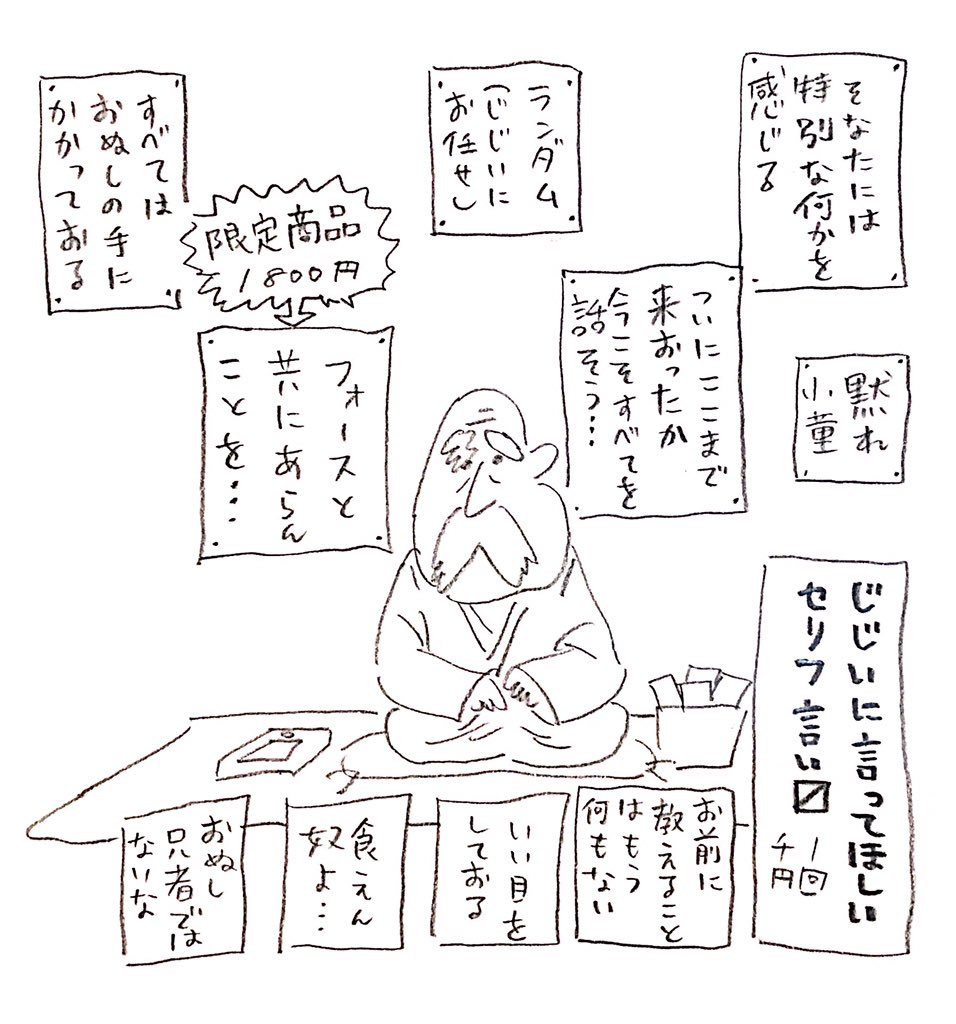 そなたには
特別な何かを
感じる
ランダム
（じじいに
お任せ）
すべては
おぬしの手に
かかっておる
限定商品
1800円
ついにここまで
来おったか
今こそすべてを
話そう…
フォースと
共にあらん
ことを…
黙れ
小童
じじいに言ってほしい
セリフ言い〼
1回
千円
お前に
教えること
はもう
何もない
いい目を
しておる
食えん
奴よ…
おぬし
只者では
ないな